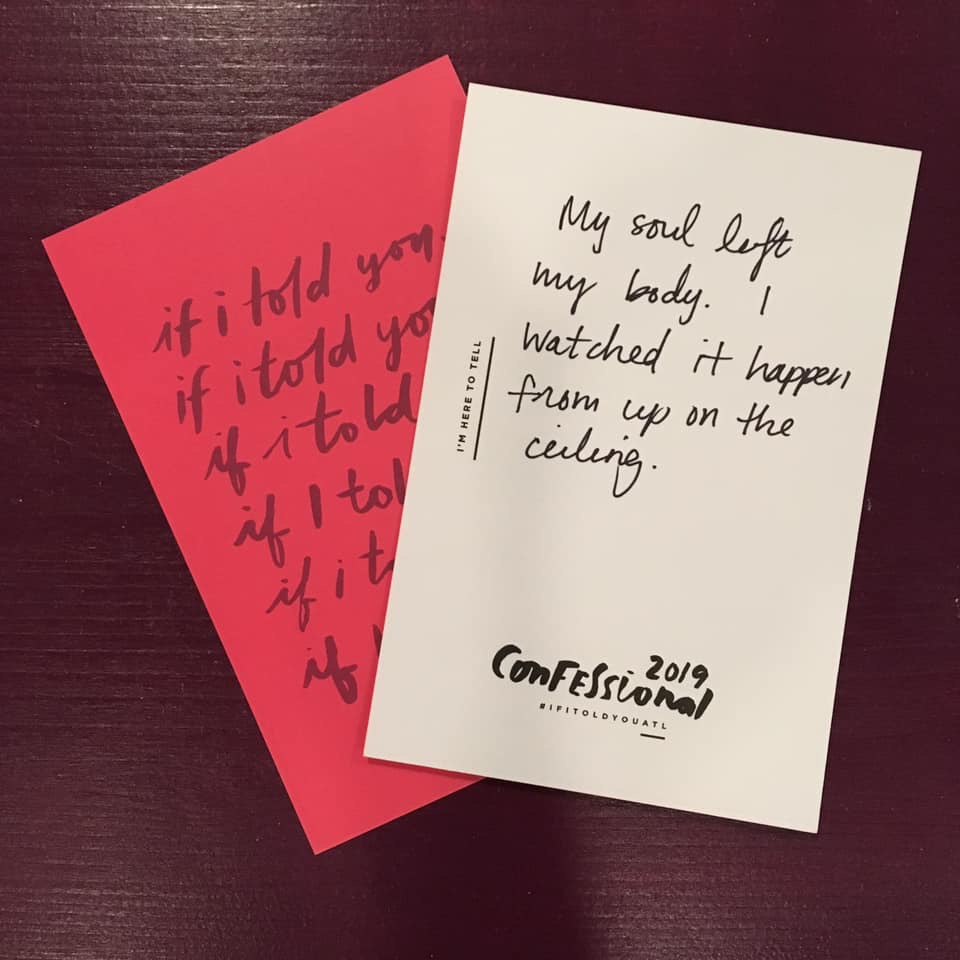 if i told you.
if i told yo
if i told
if I tol
if i t
if
My soul left
my body. I
watched it happen
from up on the
ceiling.
I'M HERE TO TELL
2019
CONFESSional
#IFITOLDYOUATL